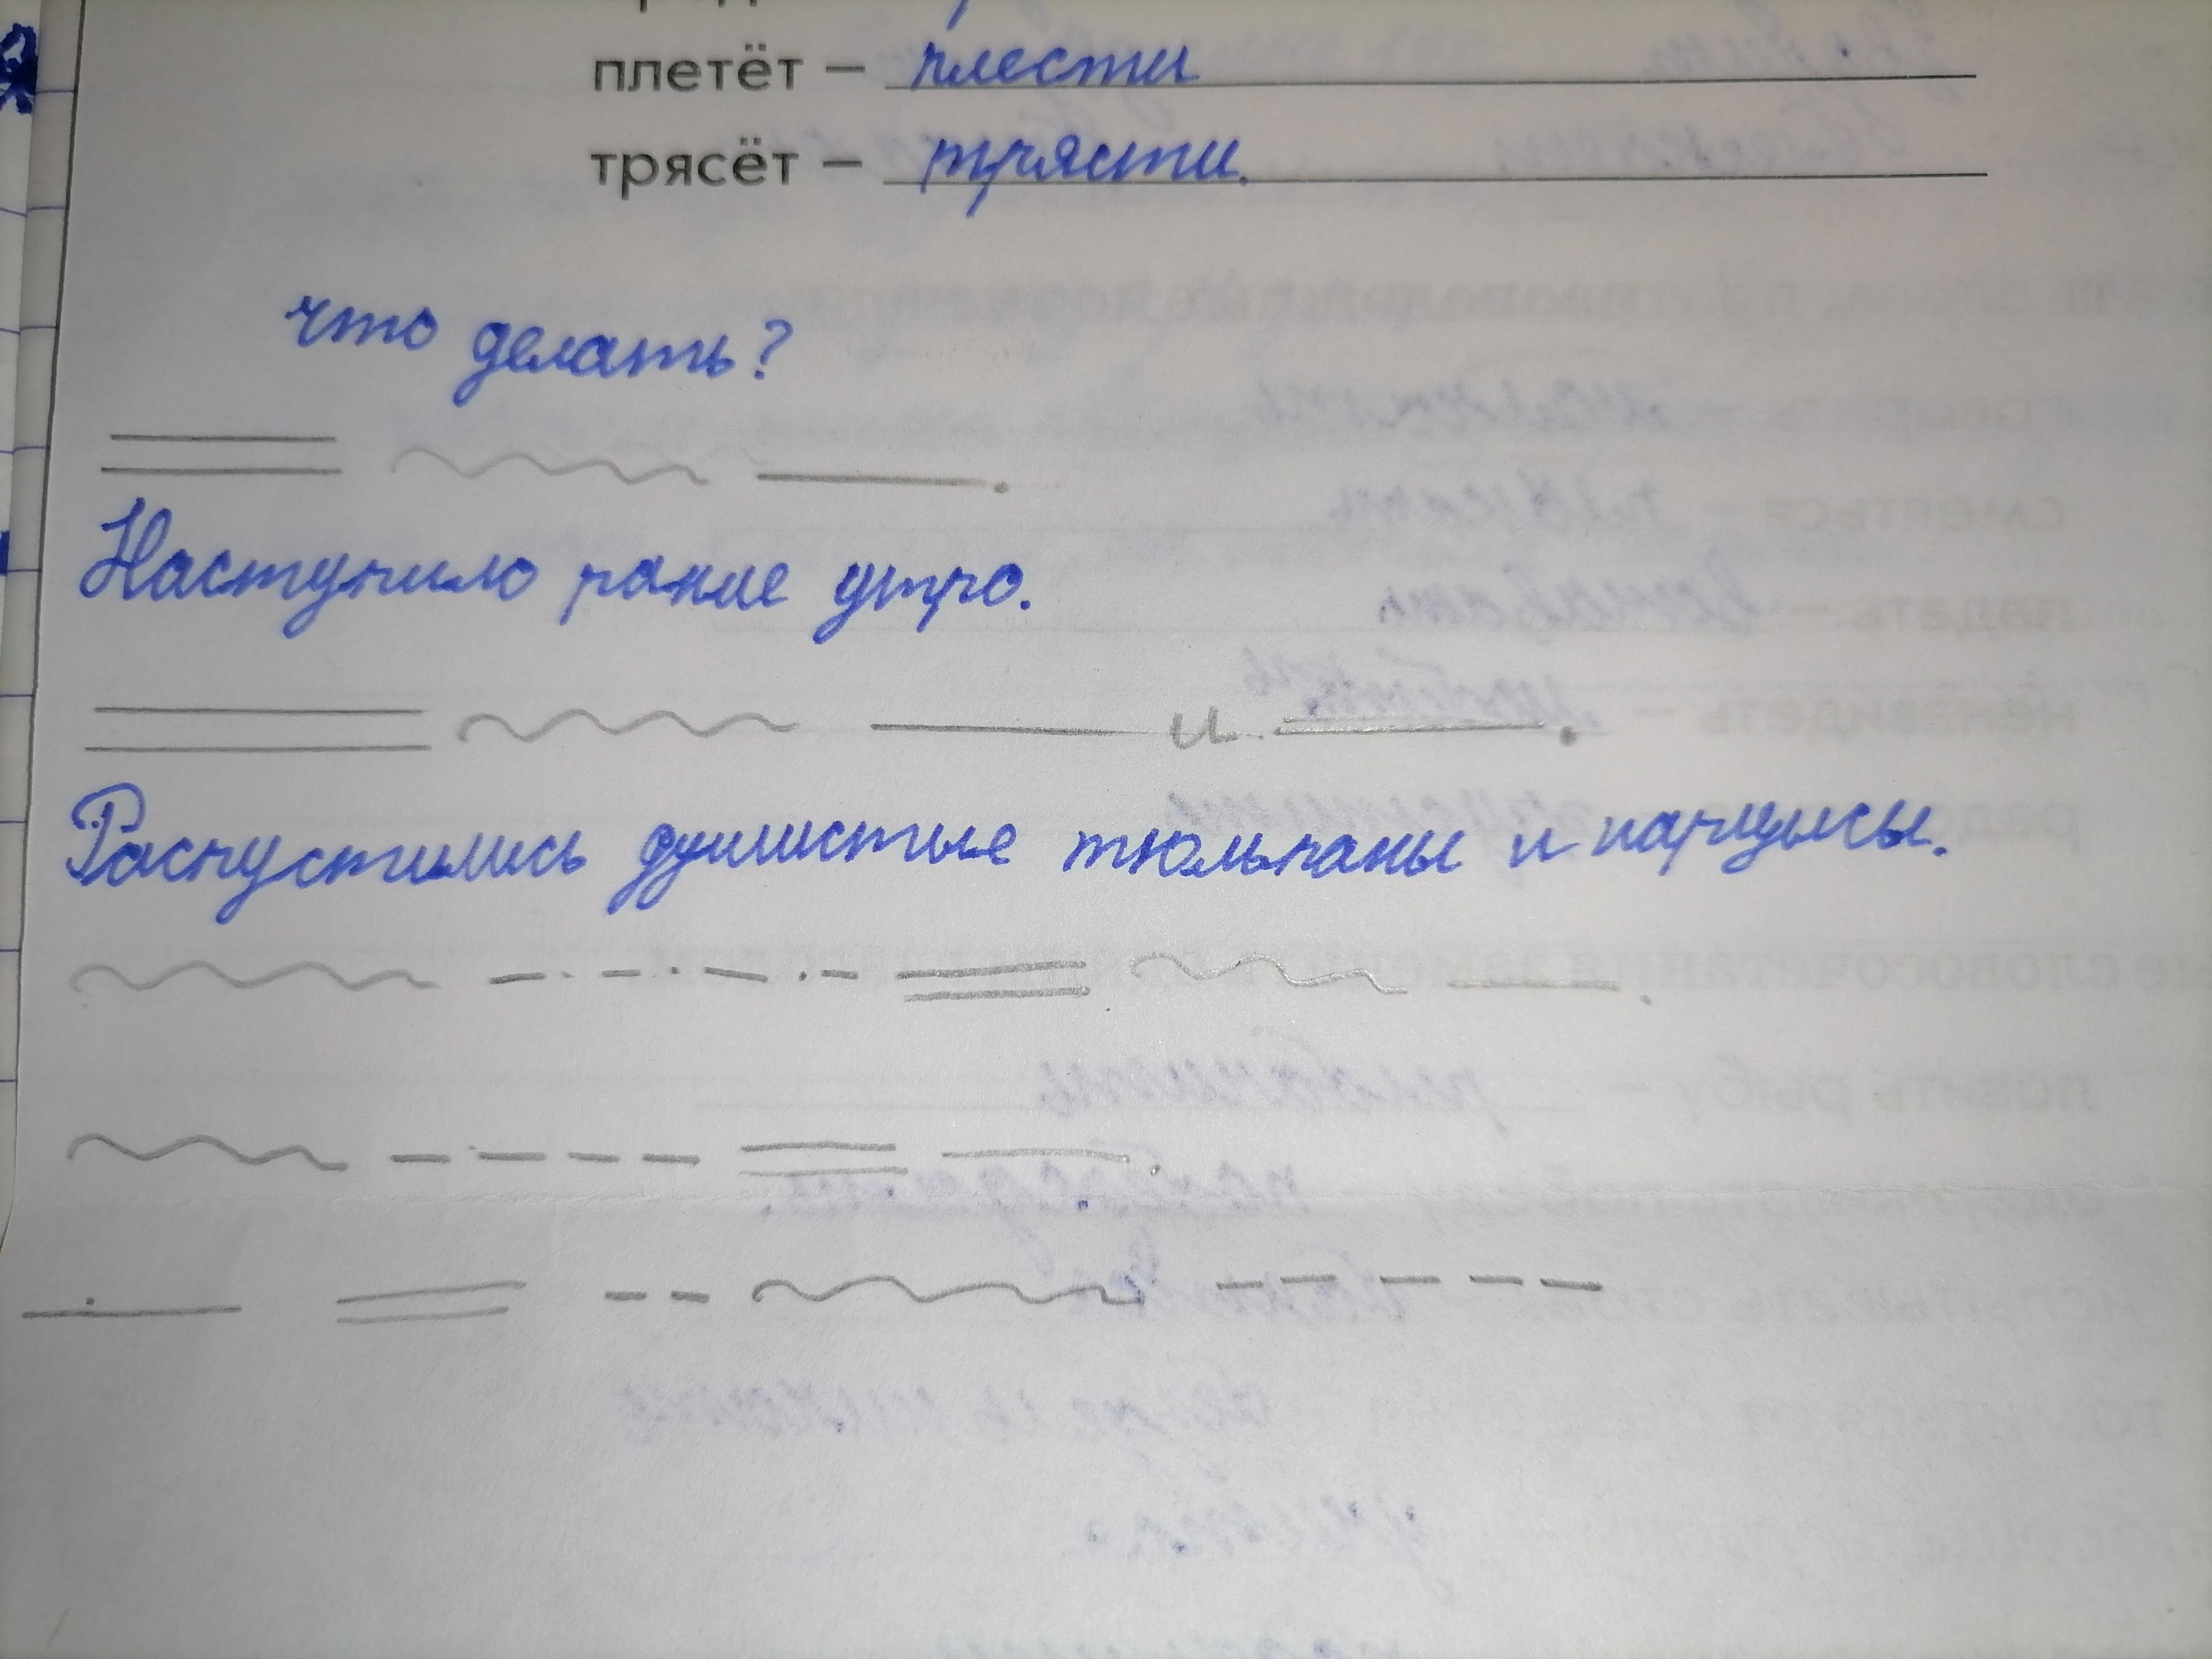 плетёт – плести
трясёт – трясти.
что делать?
Наступило рание утро.
и
Распустились душистые тюльпаны и нарцисы.